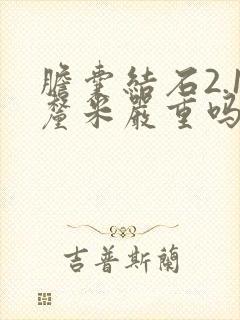 膽囊結石2.1
釐米嚴重吗
吉普斯蘭